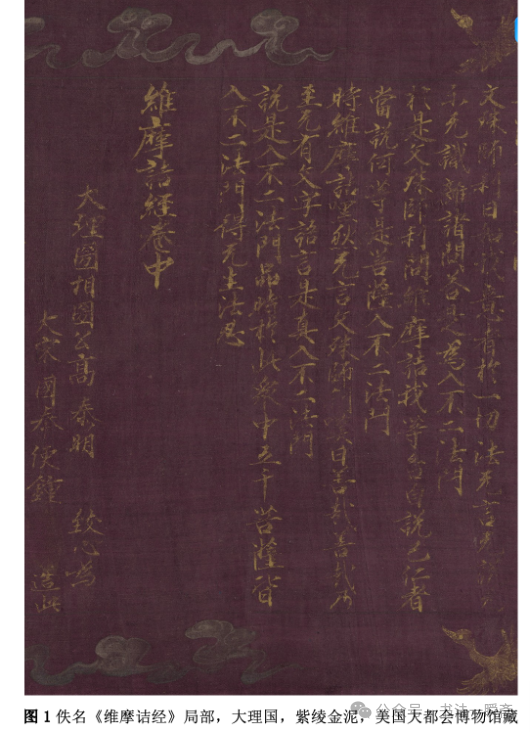 文殊師利曰如我意者於一切法无言无說
示无識離諸問答是為入不二法門
於是文殊師利問維摩詰我等各自說已仁者
當說何等是菩薩入不二法門
時維摩詰嘿然无言文殊師利嘆曰善哉善哉乃
至无有文字語言是真入不二法門
說是入不二法門品時於此眾中五千菩薩皆
入不二法門得无生法忍
維摩詰經卷中
大理國相國公高泰明 致心為
大宋國奉使鍾 造此
图1 佚名《维摩诘经》局部，大理国，紫绫金泥，美国大都会博物馆藏
公众号